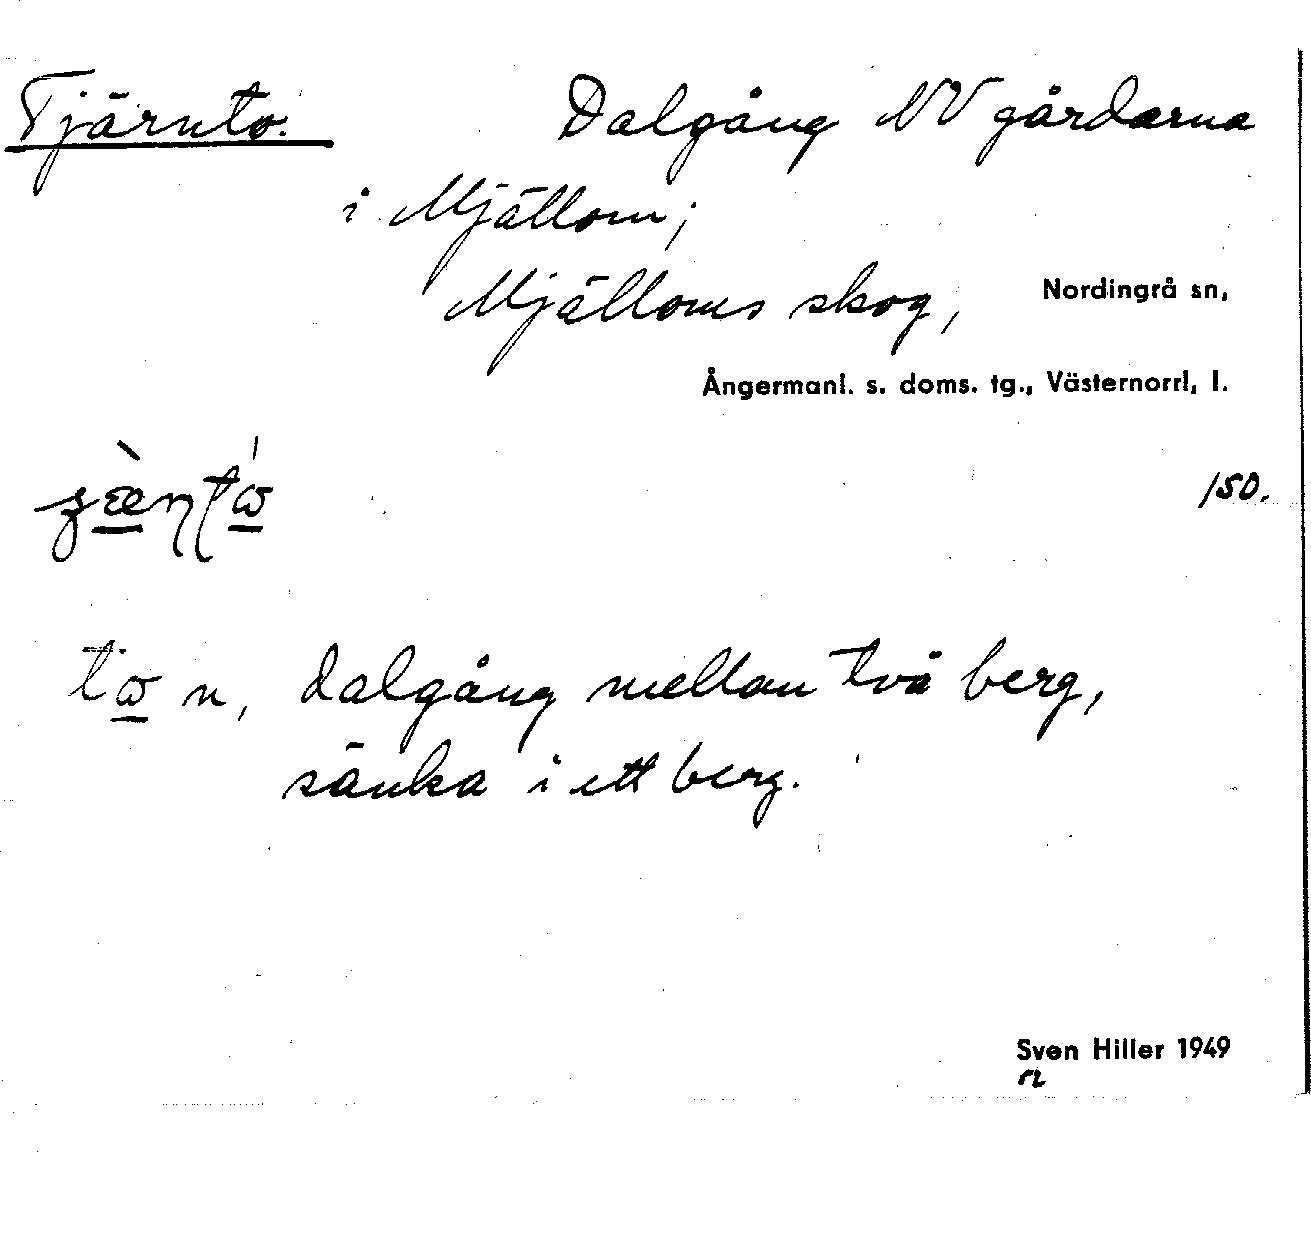 Tjärnto. Dalgång NV gårdarna
i Mjällom;
Mjälloms skog, Nordingrå sn,
Ångermanl. s. doms. tg., Västernorrl, l.
150.
to n, dalgång mellan två berg,
sänka i ett berg.
Sven Hiller 1949